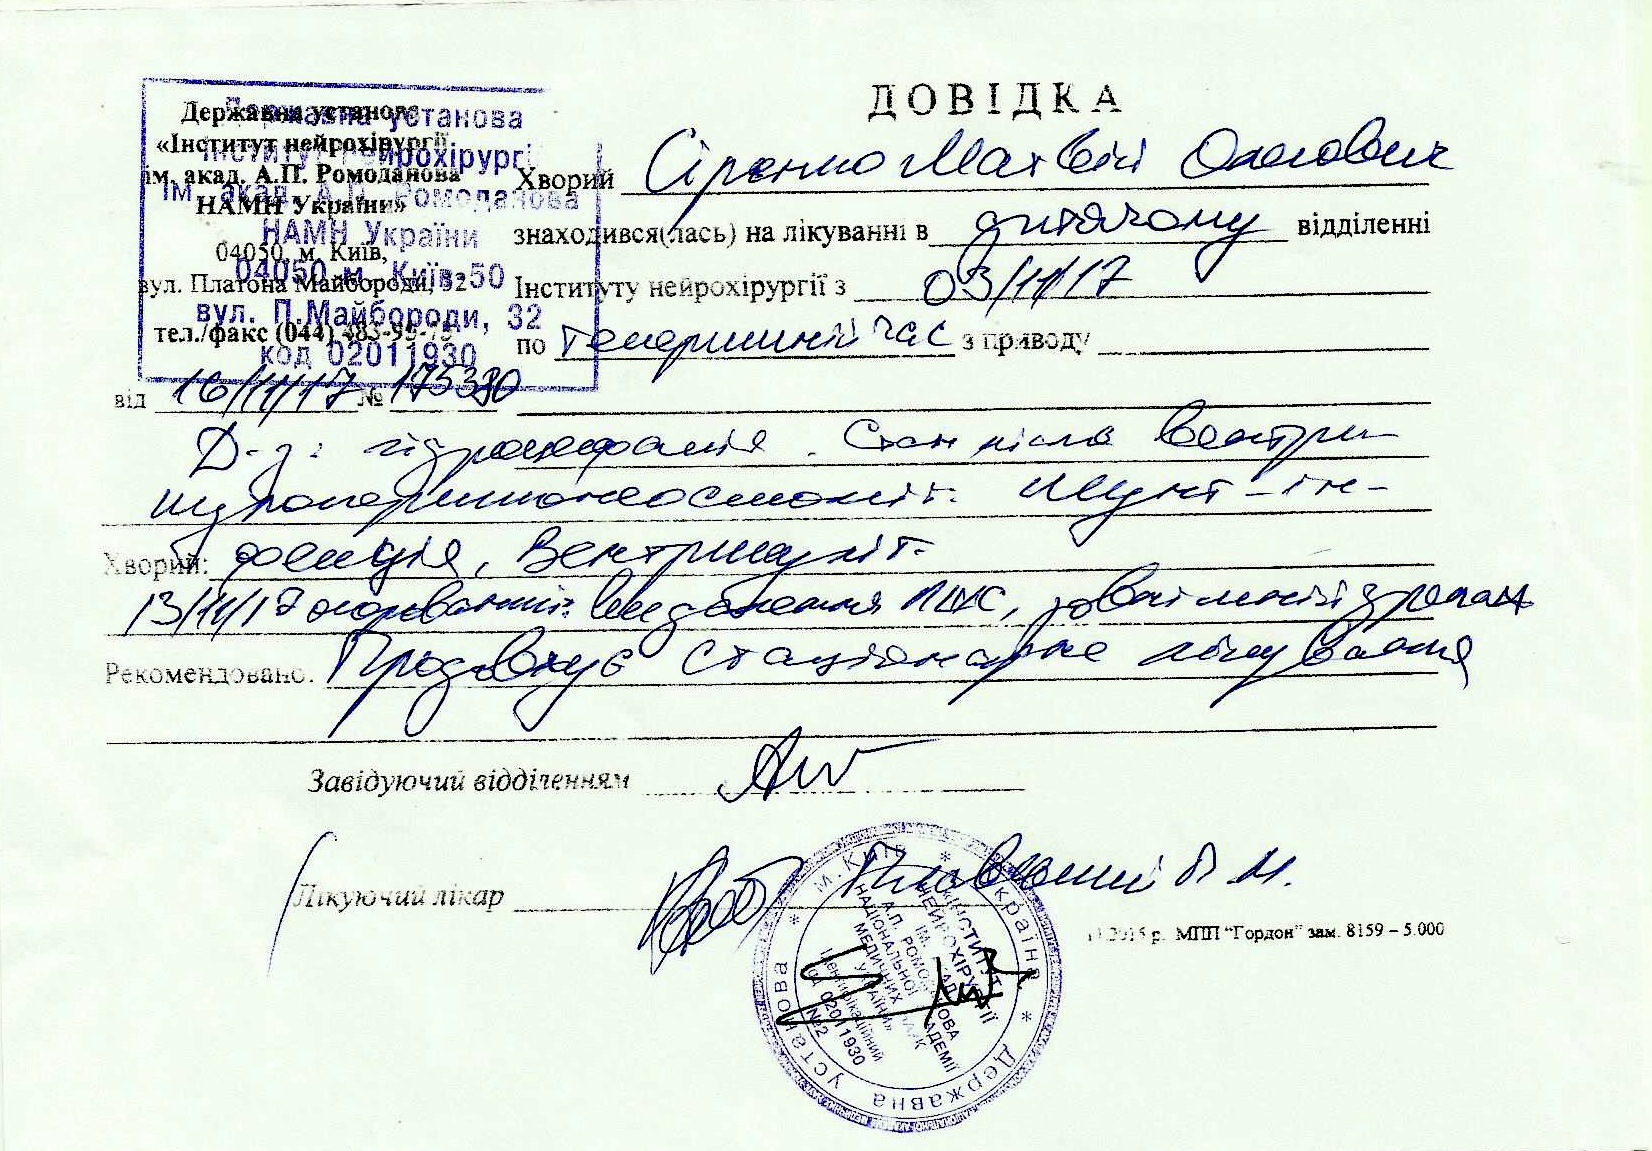 ДОВІДКА
Державна установа
«Інститут нейрохірургії
ім. акад. А.П. Ромоданова
НАМН України»
04050, м. Київ,
вул. Платона Майбороди, 32
тел./факс (044) 483-95-73
Державна установа
Інститут нейрохірургії
ім. акад. А.П. Ромоданова
НАМН України
04050 м. Київ-50
вул. П.Майбороди, 32
код 02011930
від 16/11/17 № 175330
Хворий Сіренко Матвій Олегович
знаходився(лась) на лікуванні в дитячому відділенні
Інституту нейрохірургії з 03/11/17
по теперішній час з приводу
Д-з: гідроцефалія. Стан після вентри-
кулоперитонеостомії. Шунт-ін-
Хворий: фекція, Вентрикуліт.
13/11/17 видалення ЛШС, зовнішній дренаж
Рекомендовано: Продовжує стаціонарне лікування
Завідуючий відділенням
Лікуючий лікар
2015 р. МПП "Гордон" зам. 8159 – 5.000
м. Київ * Україна * Державна установа *
ІНСТИТУТ
НЕЙРОХІРУРГІЇ
ІМ. АКАД.
А.П. РОМОДАНОВА
НАЦІОНАЛЬНОЇ АКАДЕМІЇ
МЕДИЧНИХ НАУК
УКРАЇНИ»
Ідентифікаційний
код 02011930
№2